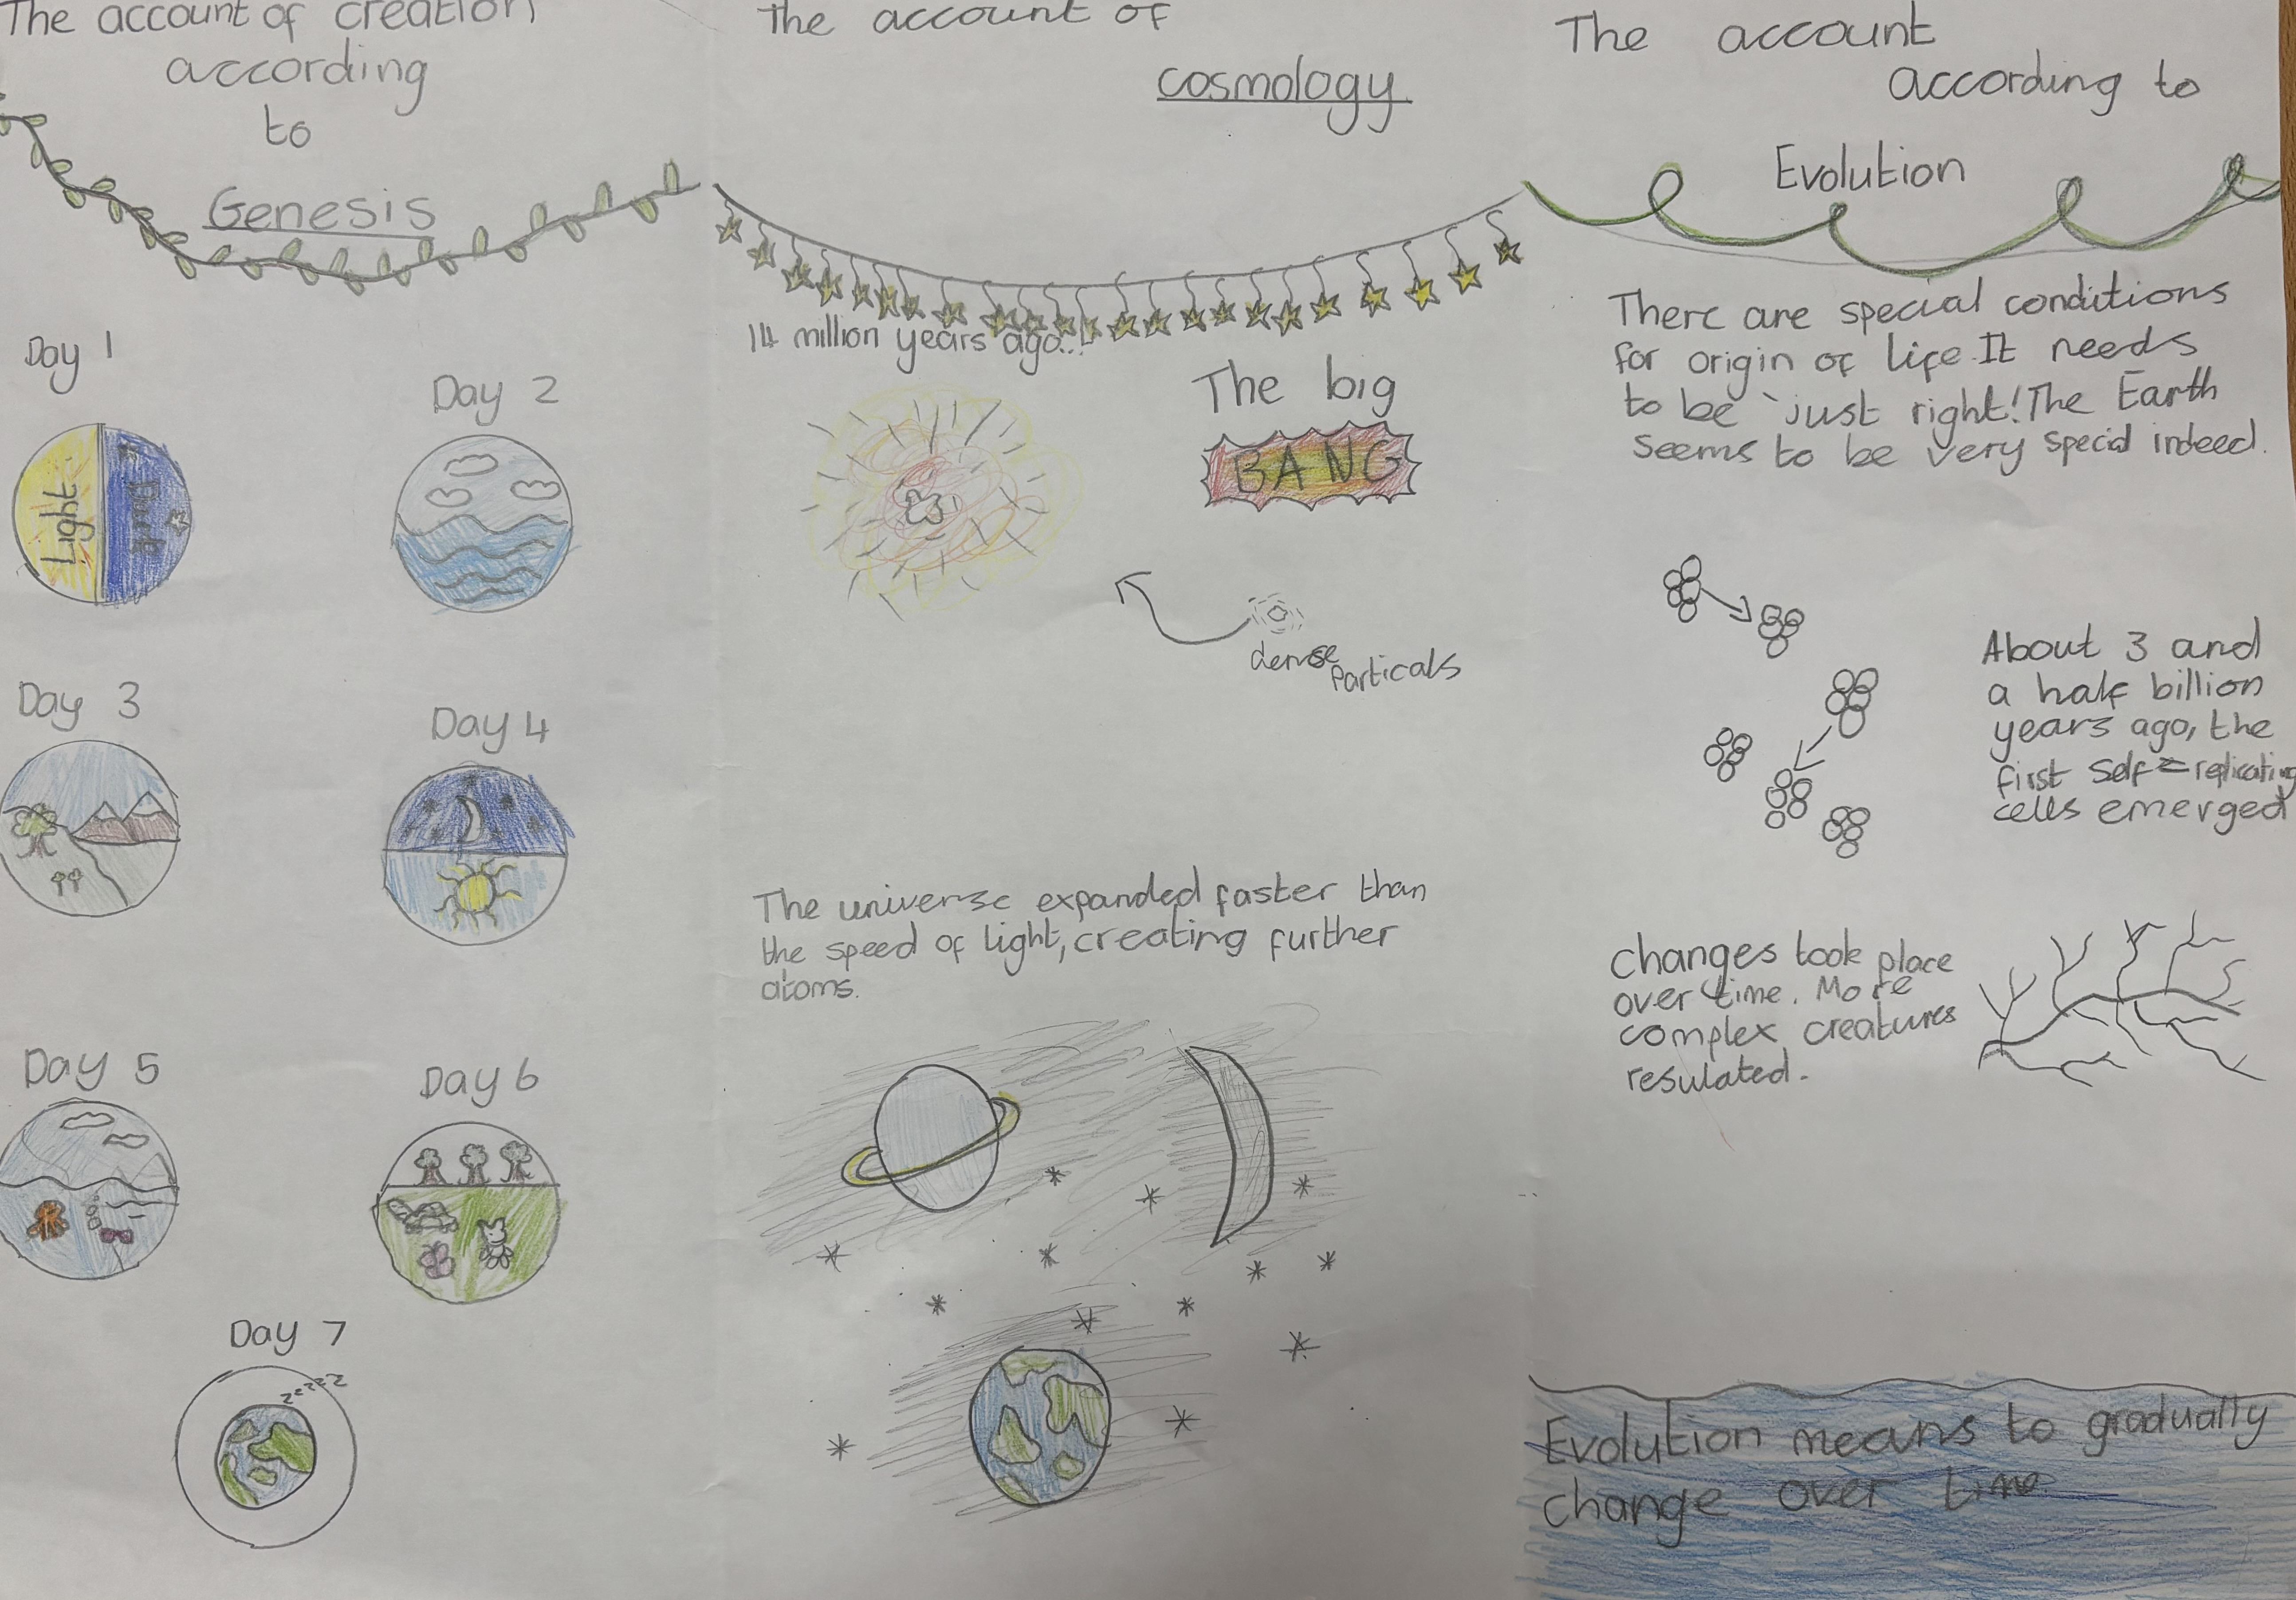 The account of creation
according
to
Genesis
Day 1
Light
Dark
Day 2
Day 3
Day 4
Day 5
Day 6
Day 7
zzzzz
The account of
cosmology
14 million years ago...
The big
BANG
dense
Particals
The universe expanded faster than
the speed of light, creating further
atoms.
The account
according to
Evolution
There are special conditions
for origin of life. It needs
to be 'just right! The Earth
seems to be very special indeed.
About 3 and
a half billion
years ago, the
first self=replicating
cells emerged
changes took place
over time. More
complex creatures
resulated.
Evolution means to gradually
change over time